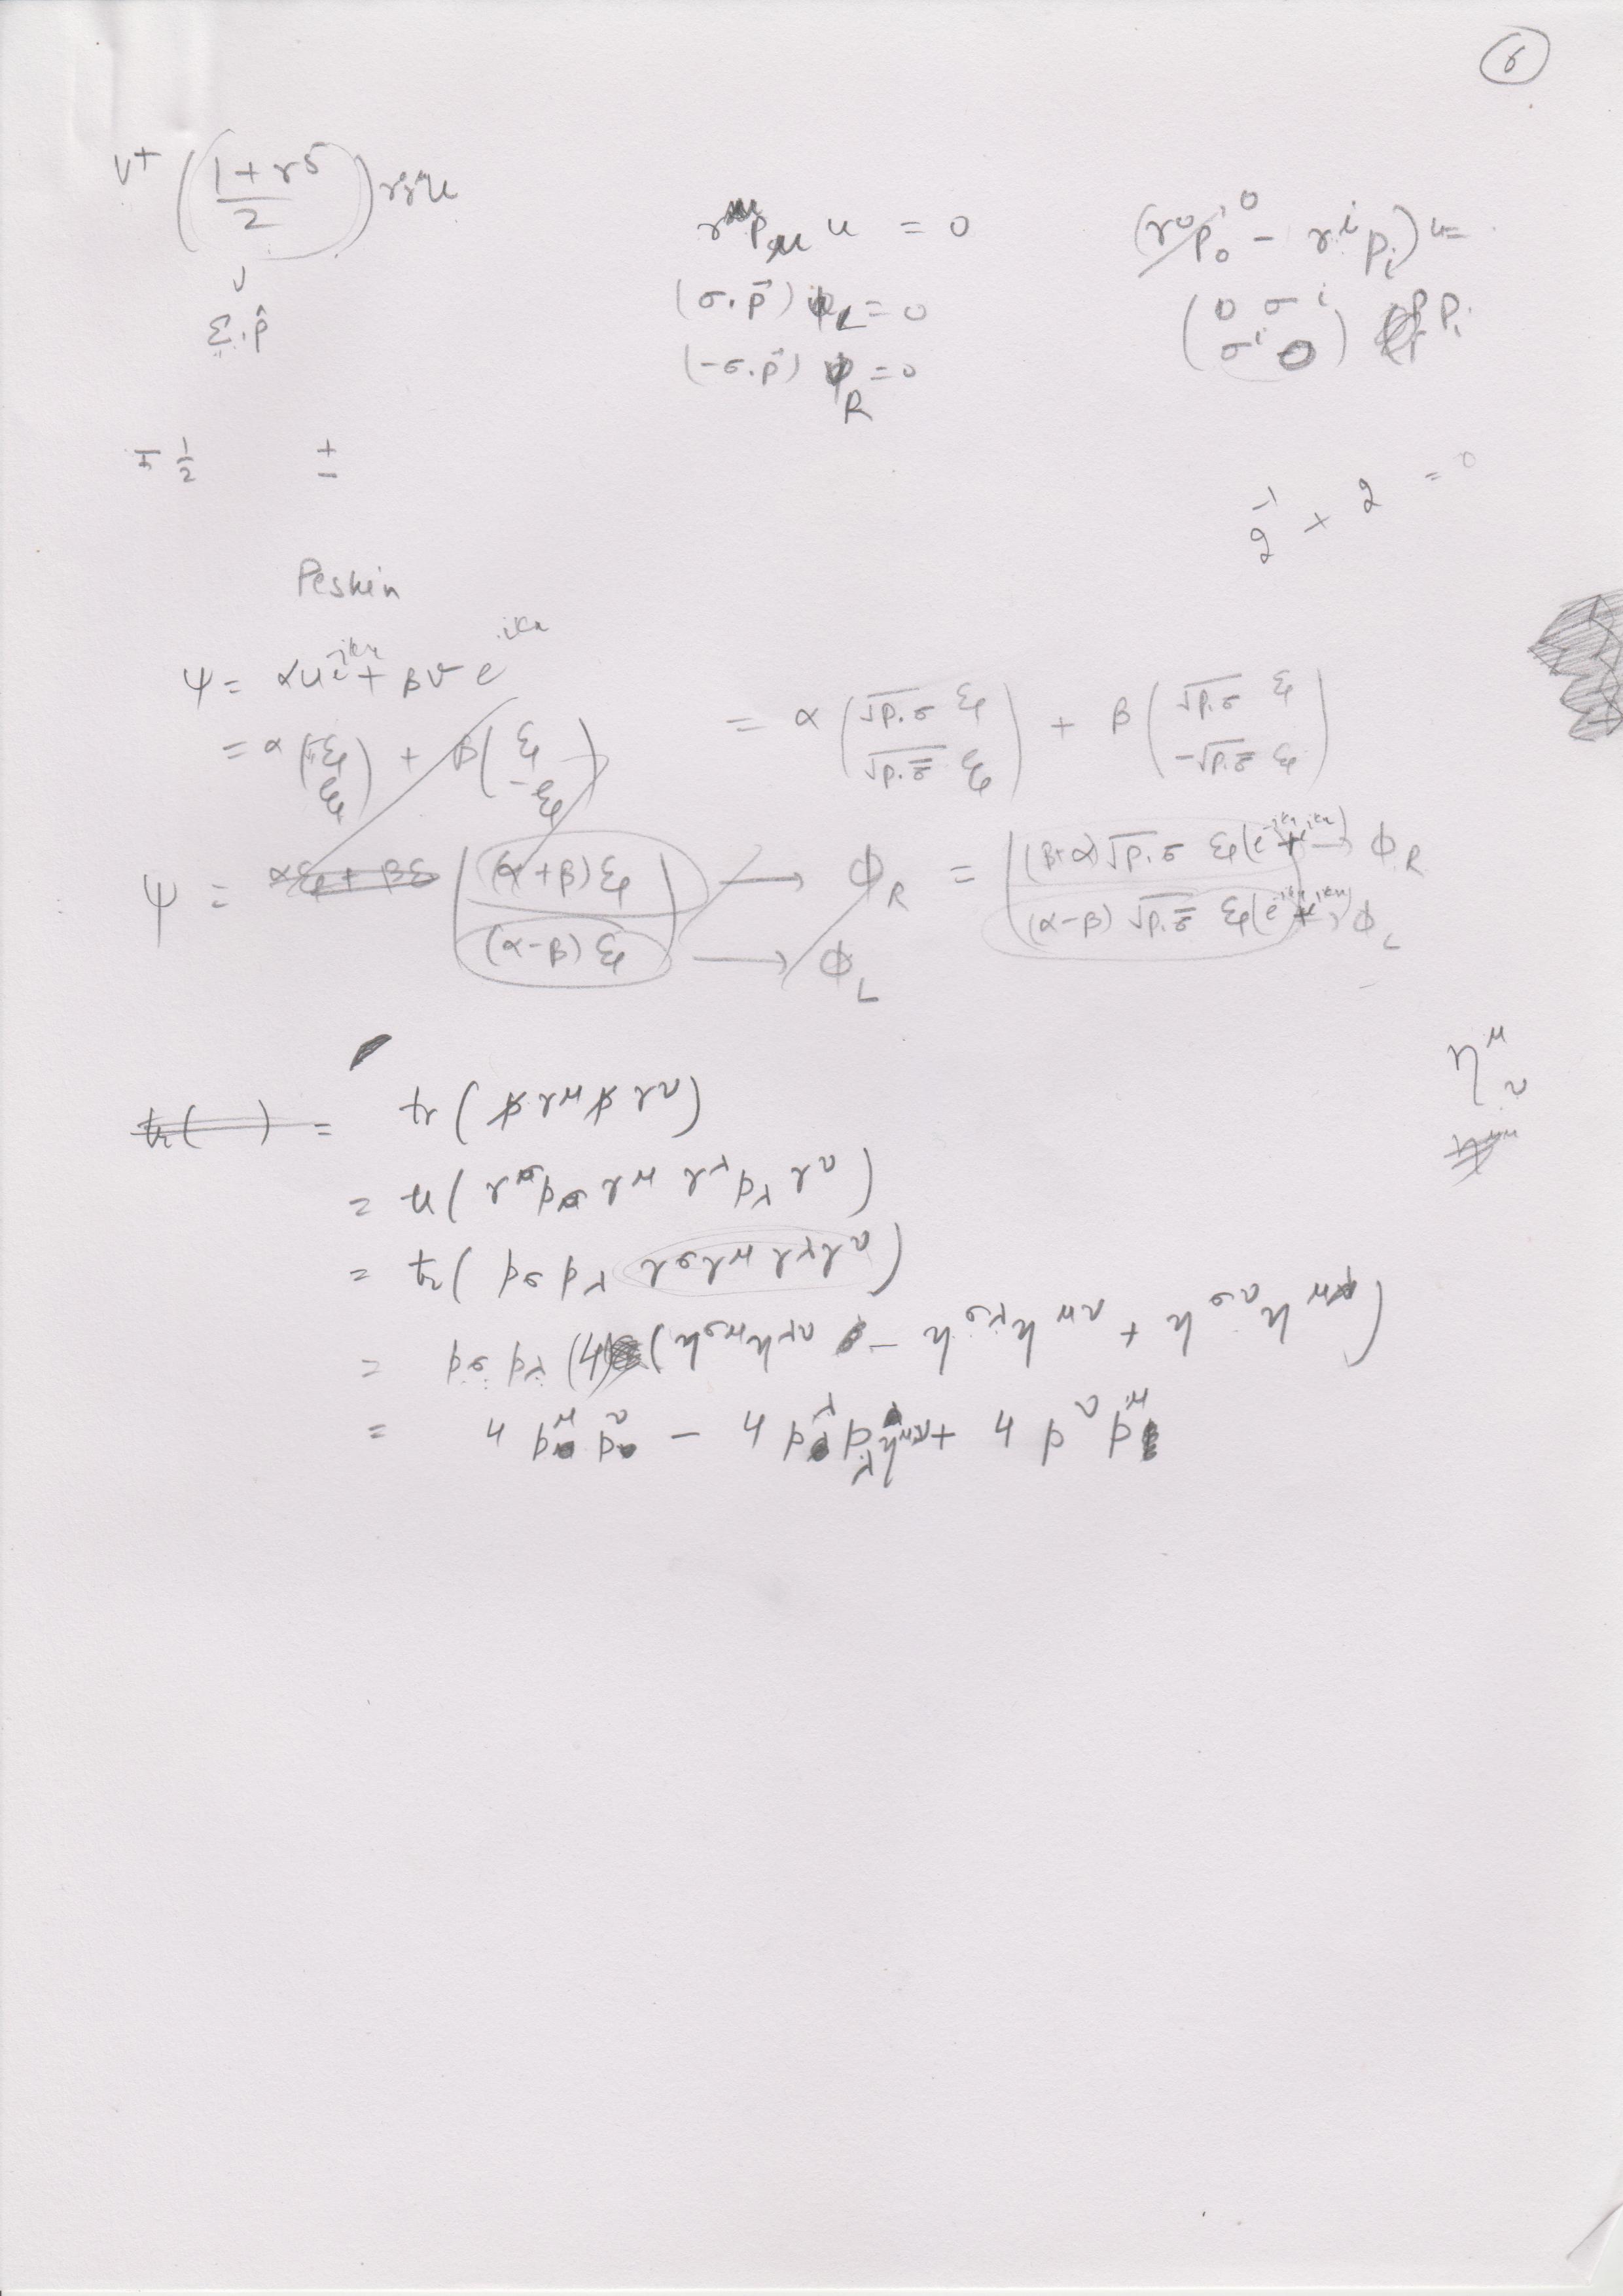 6
v⁺ ( (1 + γ⁵)/2 ) γ⁰γᵘ u
Σ . p̂
γᵘ p_μ u = 0
(σ . p⃗) ϕ_L = 0
(-σ . p⃗) ϕ_R = 0
(γ⁰ p₀ - γⁱ p_i) u =
( 0 σⁱ
σⁱ 0 ) p_i
1/2 ±
Peskin
ψ = α u e^{-ikx} + β v e^{ikx}
= α ( ξ ξ ) + β ( ξ -ξ ) = α ( √p.σ ξ √p.σ̄ ξ ) + β ( √p.σ ξ -√p.σ̄ ξ )
ψ = αξ + βξ ( (α + β) ξ → ϕ_R = ( (β+α) √p.σ ξ (e^{-ikx} + e^{ikx}) → ϕ_R
(α - β) ξ ) → ϕ_L (α - β) √p.σ̄ ξ (e^{-ikx} + e^{ikx}) ) ϕ_L
η^μ_ν
tr ( ) = tr ( p̸ γ^μ p̸ γ^ν )
= tr ( γ^σ p_σ γ^μ γ^λ p_λ γ^ν )
= tr ( p_σ p_λ γ^σ γ^μ γ^λ γ^ν )
= p_σ p_λ (4) ( η^{σμ} η^{λν} - η^{σλ} η^{μν} + η^{σν} η^{μλ} )
= 4 p^μ p^ν - 4 p^λ p_λ η^{μν} + 4 p^ν p^μ